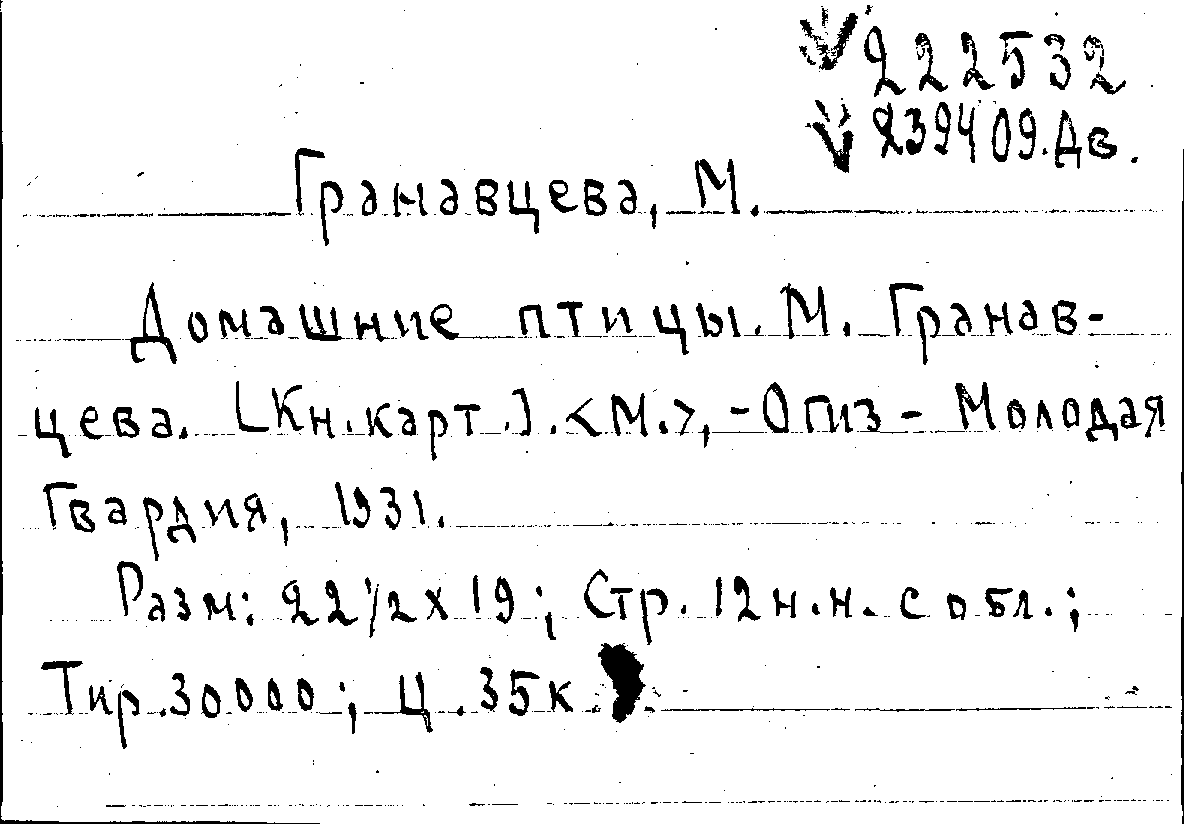 222532
239409.Дв.
Гранавцева, М.
Домашние птицы. М. Гранав-
цева. [Кн. карт.]. <М.>, - Огиз - Молодая
Гвардия, 1931.
Разм: 22 1/2 x 19; Стр. 12 н.н. с обл.;
Тир. 30000; Ц. 35к